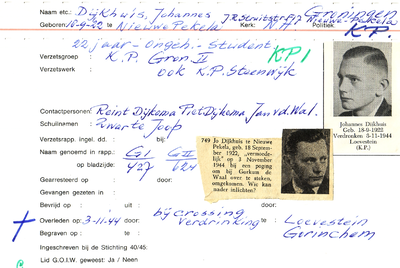 Naam etc.: Dijkhuis, Johannes J.R. Groningen
Geboren: 18-9-22 te Nieuwe Pekela Kerk: N.H. Politiek: Nieuwe Pekela
K.P.
22 jaar - Ongeh. - Student. KP1
Verzetsgroep : K.P. Gron. II
Verzetswerk : ook K.P. Steenwijk
Contactpersonen: Reint Dijkema Piet Dijkema Jan v.d. Wal.
Schuilnamen : Zwarte Joop
Verzetsrapp. ingel. dd. : bij:
Naam genoemd in rapp.: GI GII
op bladzijde: 427 624
Gearresteerd op : door:
Gevangen gezeten in :
Bevrijd op : uit : door:
Overleden op : 3-11-44 door: bij crossing verdrinking te : Loevestein
Begraven op : te : Gorinchem
Ingeschreven bij de Stichting 40/45:
Lid G.O.I.W. geweest: Ja / Neen
Johannes Dijkhuis
Geb. 18-9-1922
Verdronken 3-11-1944
Loevestein
(K.P.)
749 Jo Dijkhuis te Nieuwe
Pekela, geb. 18 Septem-
ber 1922, „vermoede-
lijk” op 3 November
1944 bij een poging
om bij Gorkum de
Waal over te steken,
omgekomen. Wie kan
nader inlichten?